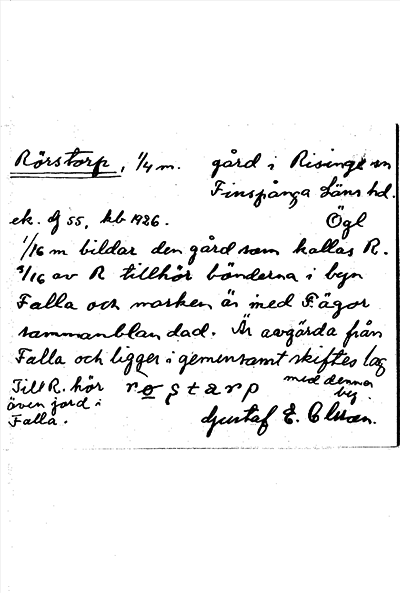 Rörstorp, 1/4 m. gård i Risinge sn
Finspånga Läns hd.
ek. bl 55, kb 1926. Ögl
1/16 m bildar den gård som kallas R.
3/16 av R tillhör bönderna i byn
Falla och marken är med F. ägor
sammanblandad. Är avgärda från
Falla och ligger i gemensamt skiftes lag
med denna by.
Till R. hör
även jord i
Falla.
Gustaf E. Olsson.